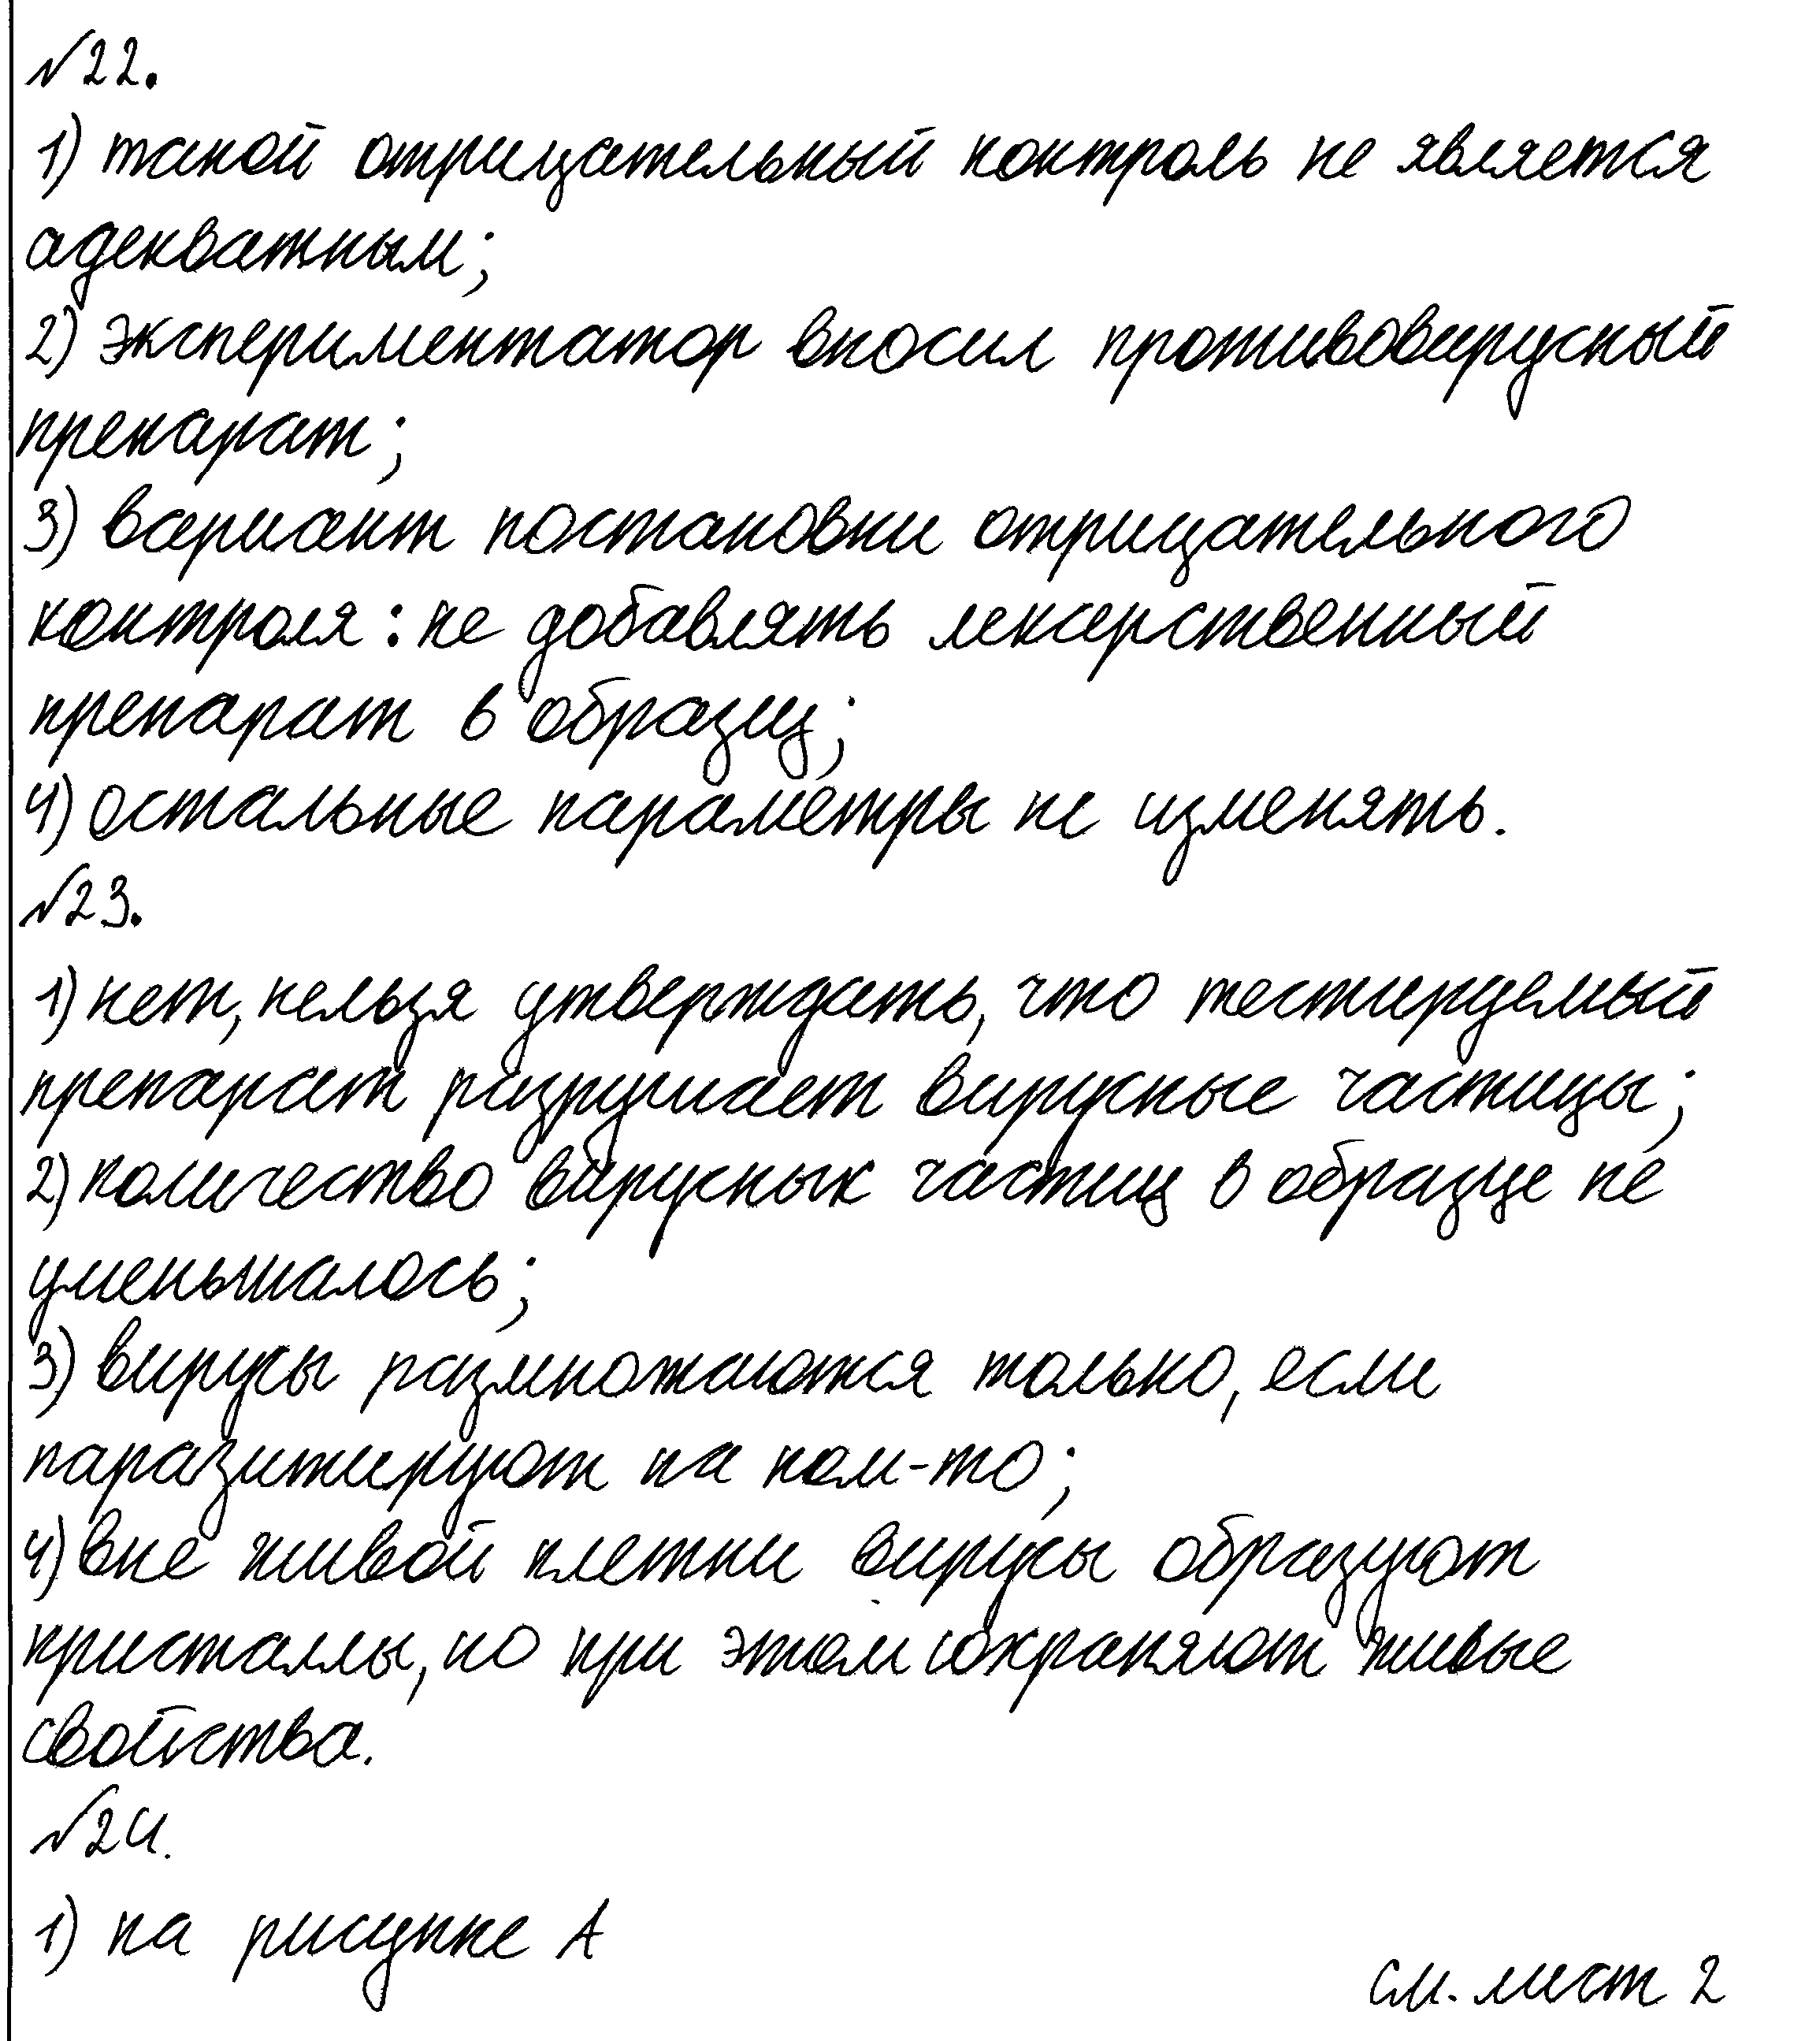 №22.
1) такой отрицательный контроль не является
адекватным;
2) экспериментатор вносил противовирусный
препарат;
3) вариант постановки отрицательного
контроля: не добавлять лекарственный
препарат в образец;
4) остальные параметры не изменять.
№23.
1) нет, нельзя утверждать, что тестируемый
препарат разрушает вирусные частицы;
2) количество вирусных частиц в образце не
уменьшалось;
3) вирусы размножаются только, если
паразитируют на ком-то;
4) вне живой клетки вирусы образуют
кристаллы, но при этом сохраняют живые
свойства.
№24.
1) на рисунке А
см. лист 2